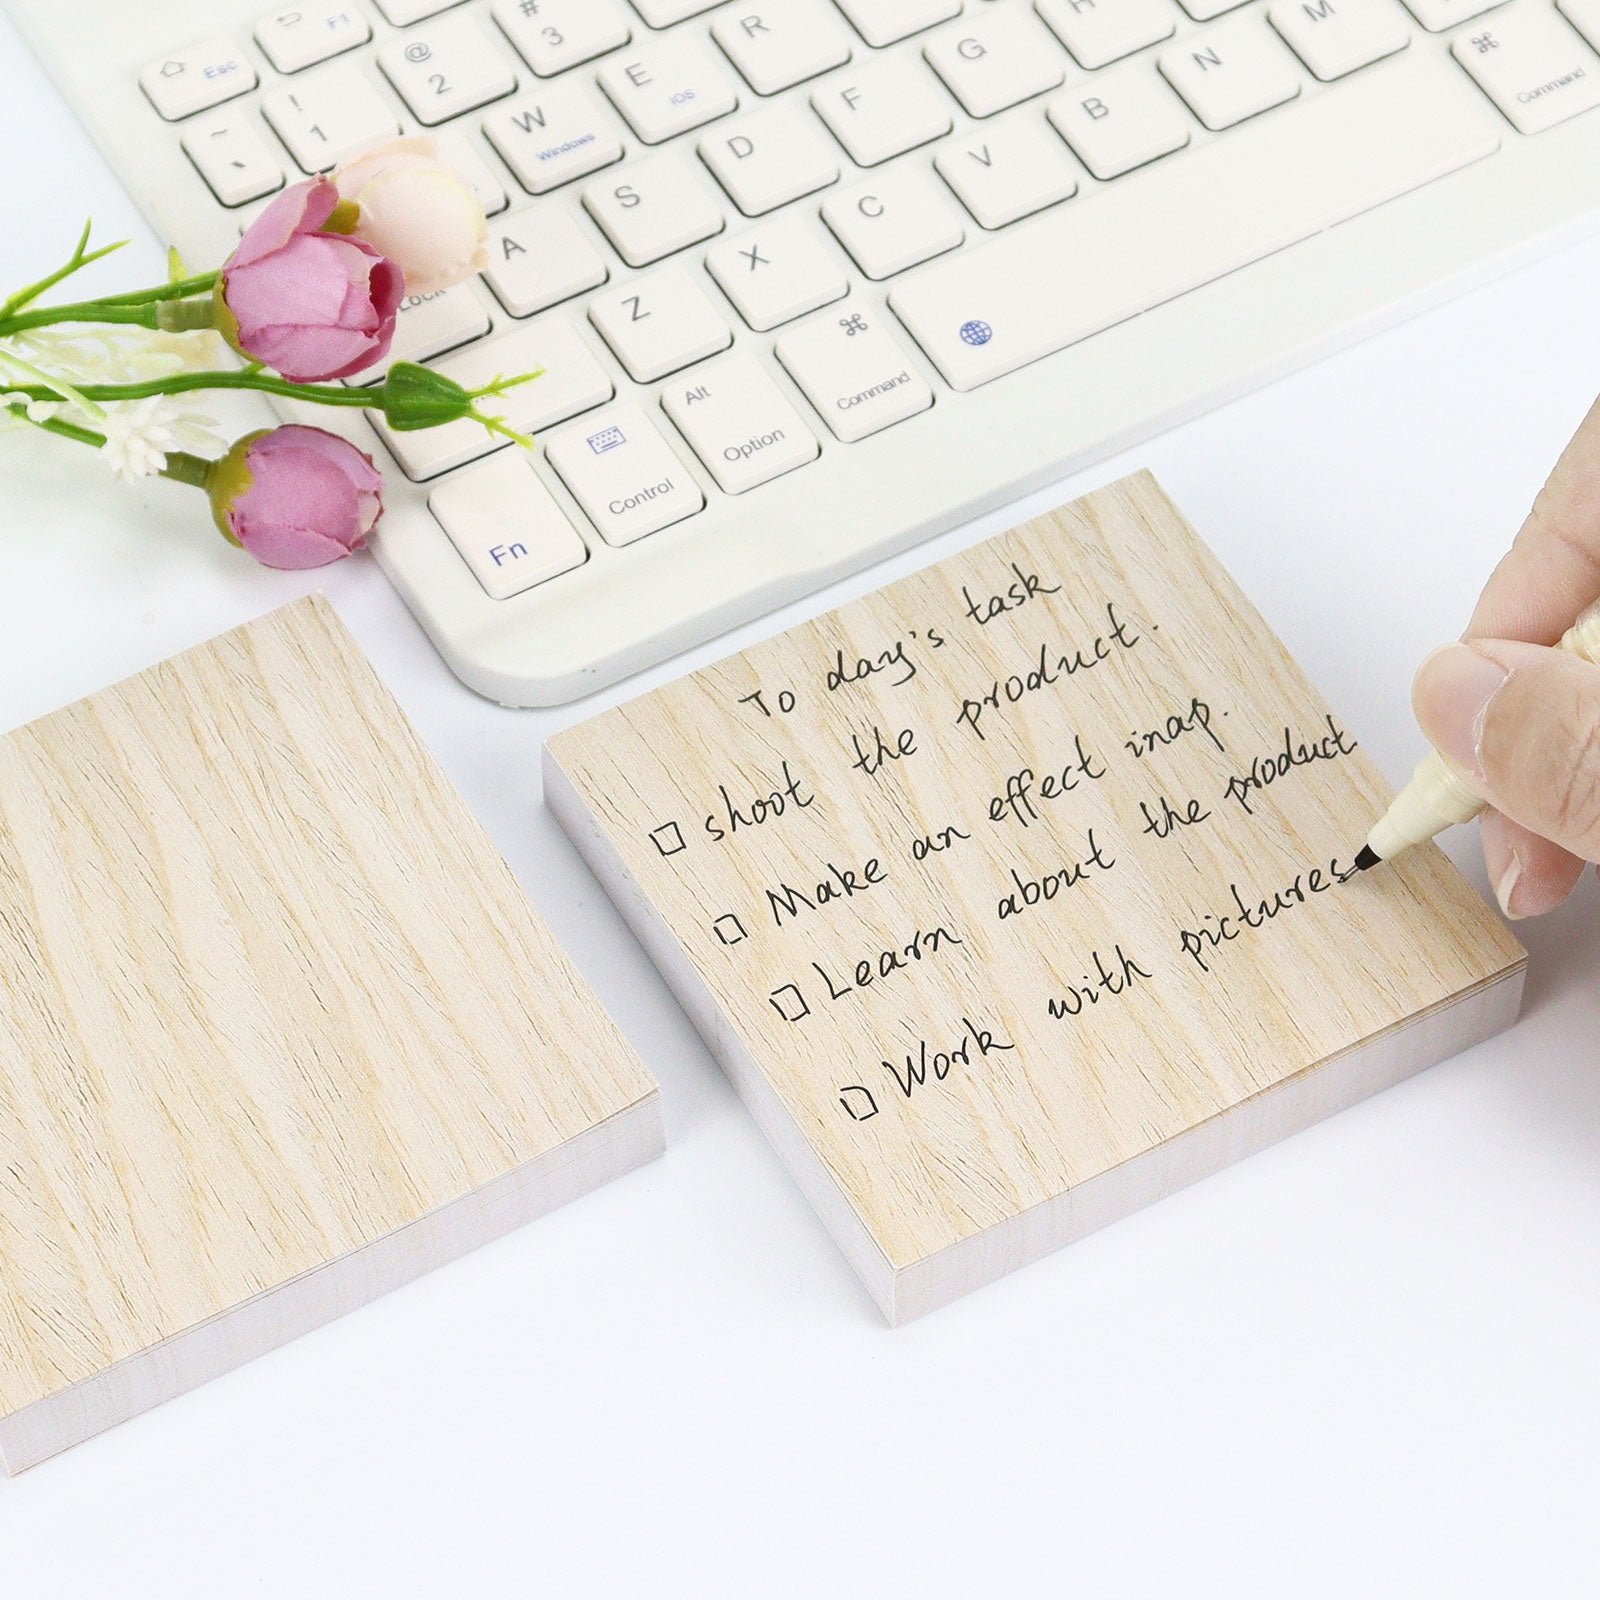 F1
Esc
# 3
@ 2
! 1
~ `
R
E iOS
W Windows
H
G
F
D
S
A
M
N
B
V
C
X
Z
⌘ Command
⌘ Command
Alt Option
Control
Fn
Lock
To day's task
□ shoot the product.
□ Make an effect inap.
□ Learn about the product
□ Work with pictures